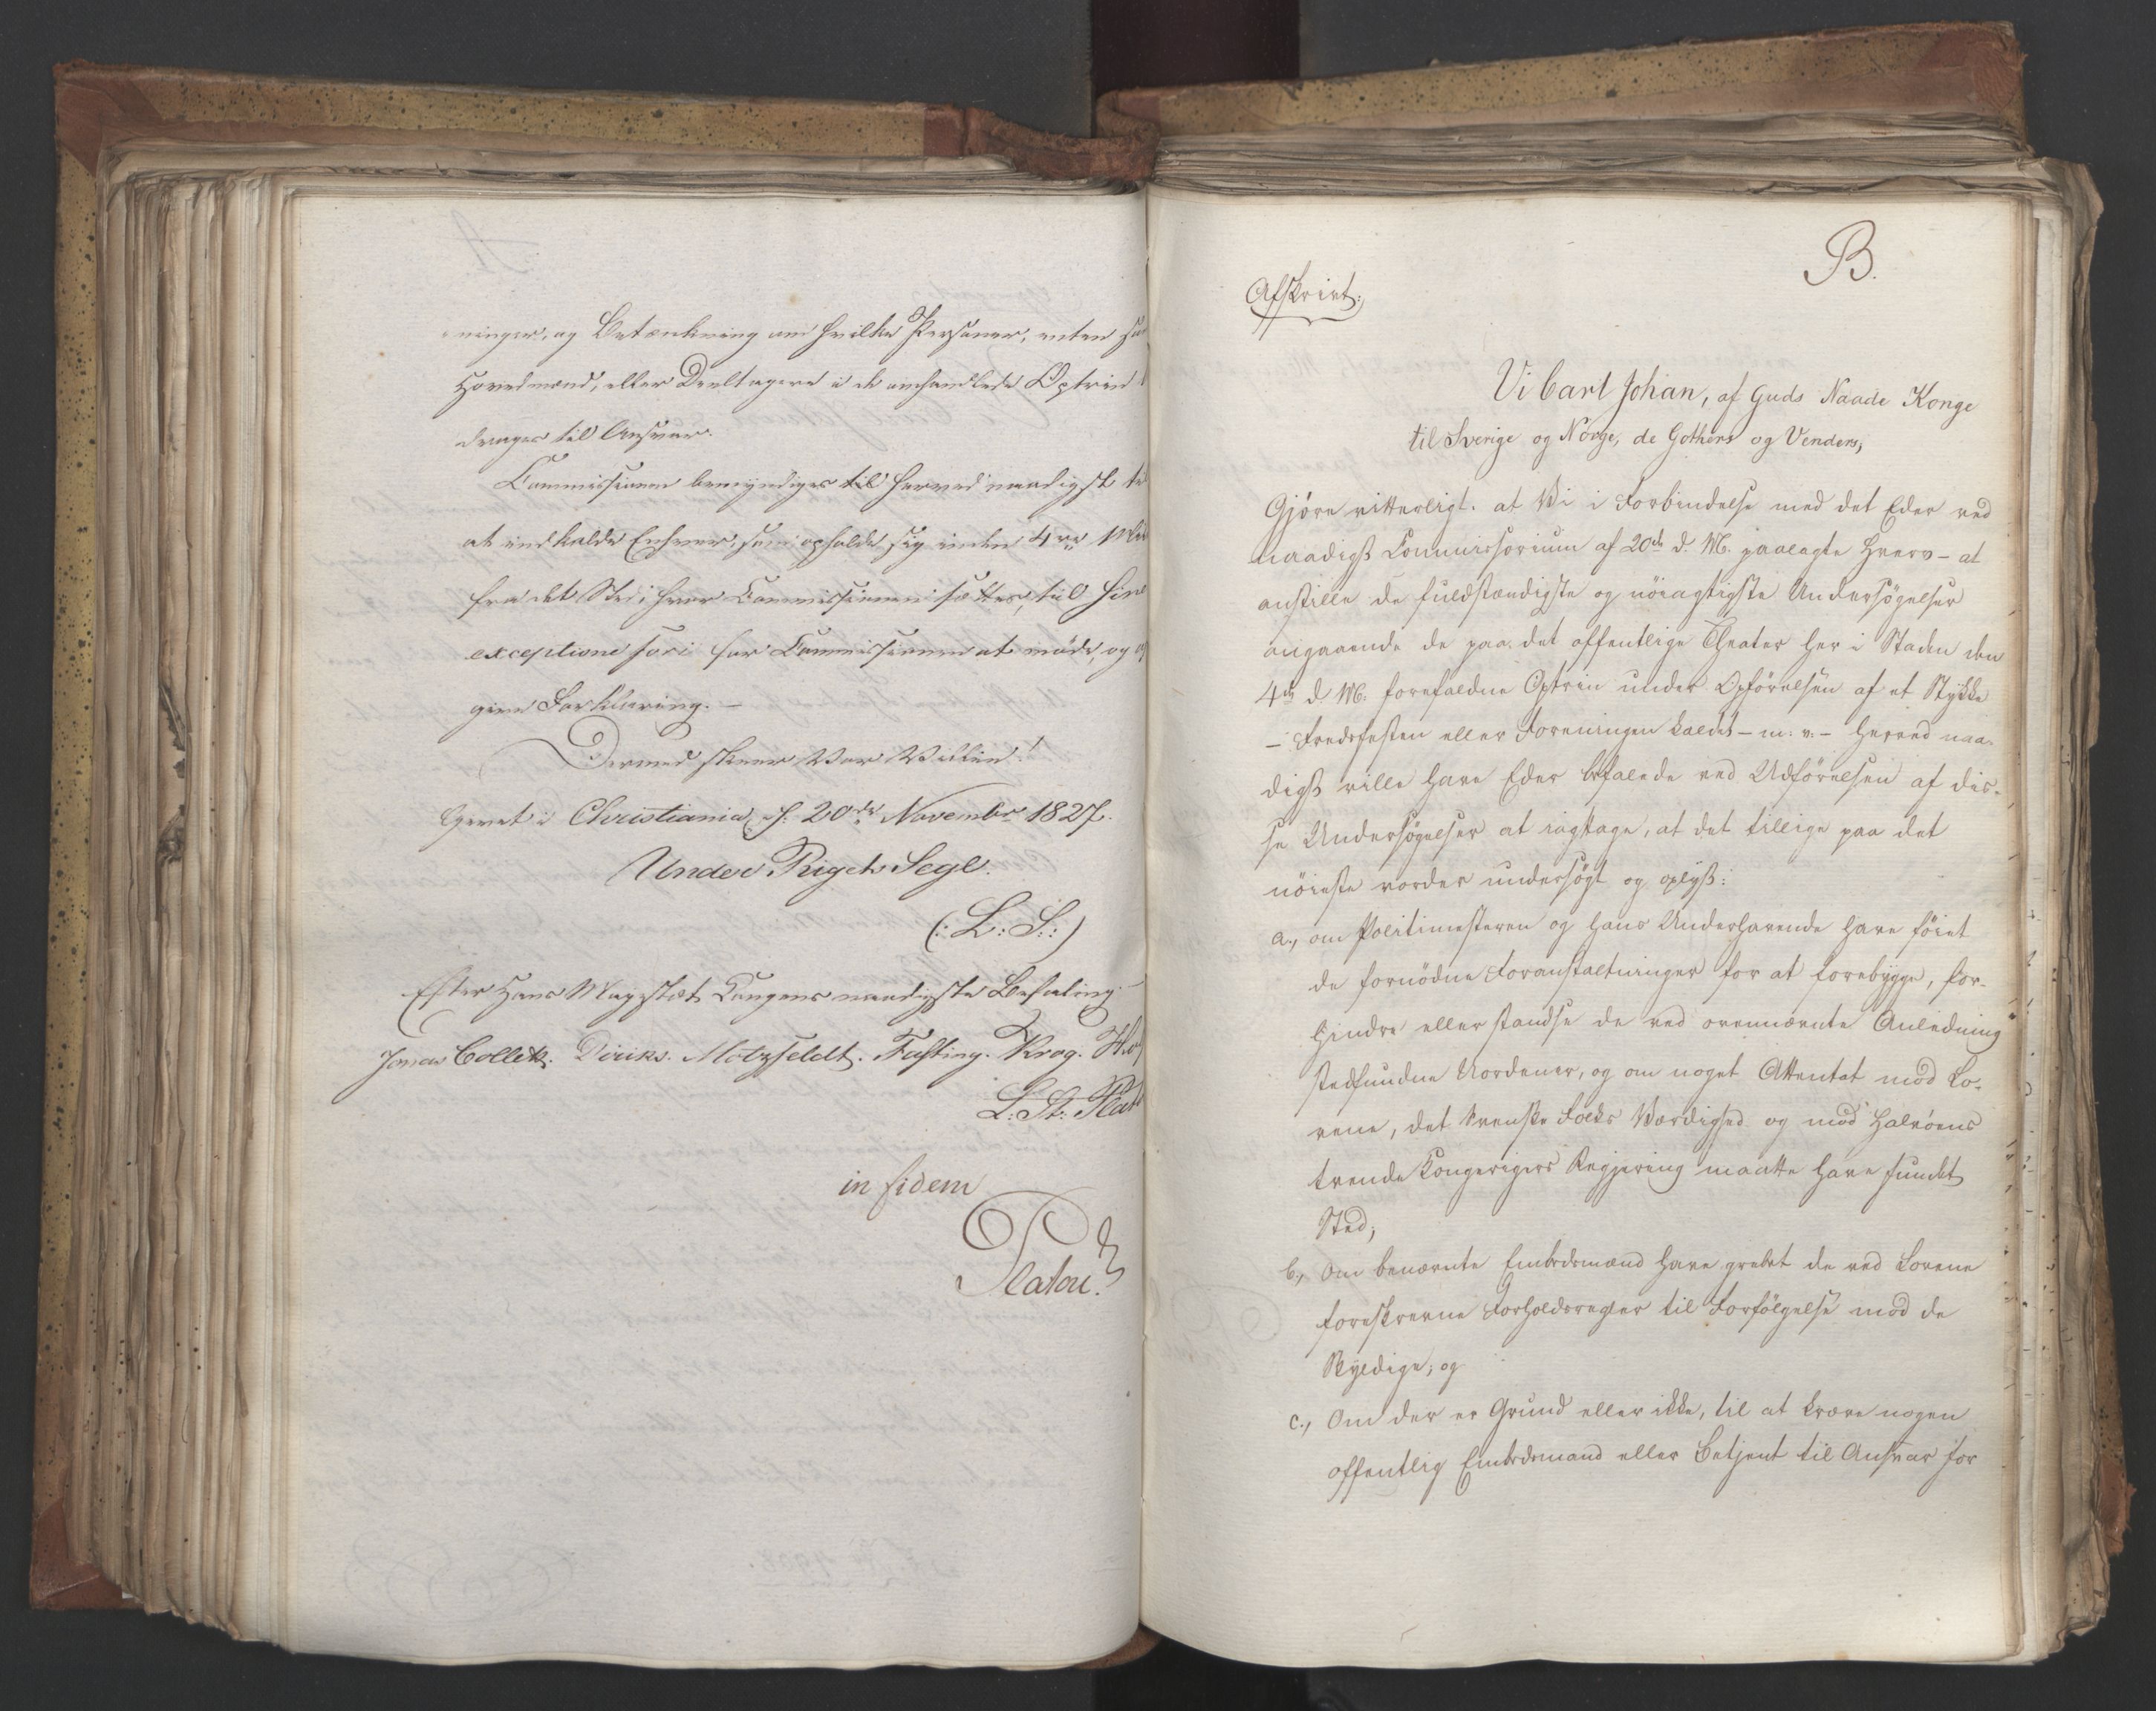 ninger, og Betænkning om hvilke Personer, enten som
Hovedmænd, eller Deeltagere i de omhandlede Optrin
drages til Ansvar.
Commissionen bemyndiges til herved naadigst til
at indkalde Enhver, som opholde sig inden 4re Mile
fra det Sted, hvor Commissionen sættes, til sine
exceptione fori for Commissionen at møde, og
give Forklaring. —
Dermed skeer Vor Villie!
Givet i Christiania, d: 20de Novembr 1827.
Under Rigets Segl.
(: L: S.:)
Efter Hans Majestæt Kongens naadigste Befaling
Jonas Collett. Diriks. Motzfeldt. Fasting. Krog.
L: St: Plat
in fidem
Platou.
B.
Afskrivt.
Vi Carl Johan, af Guds Naade Konge
til Sverige og Norge, de Gothers og Venders,
Gjøre vitterligt: at Vi i Forbindelse med det Eder ved
naadigst Commissorium af 20de d. M. paalagte Hverv – at
anstille de fuldstændigste og nøiagtigste Undersøgelser
angaaende de paa det offentlige Theater her i Staden den
4de d. M. forefaldne Optrin under Opførelsen af et Stykke
– Fredsfesten eller Foreningen kaldet – m: v: – herved naa-
digst ville have Eder befalede ved Udførelsen af dis-
se Undersøgelser at iagttage, at det tillige paa det
nøieste vorder undersøgt og oplyst:
a., om Politimesteren og hans Underhavende have føiet
de fornødne Foranstaltninger for at forebygge, for-
hindre eller standse de ved ovennævnte Anledning
stedfundne Uordener, og om noget Attentat mod Lo-
vene, det Svenske Folks Værdighed og mod Halvøens
tvende Kongerigers Regjering maatte have fundet
Sted;
b., Om benævnte Embedsmænd have grebet de ved Lovene
foreskrevne Forholdsregler til Forfølgelse mod de
Skyldige; og
c., Om der er Grund eller ikke, til at kræve nogen
offentlig Embedsmand eller Betjent til Ansvar for